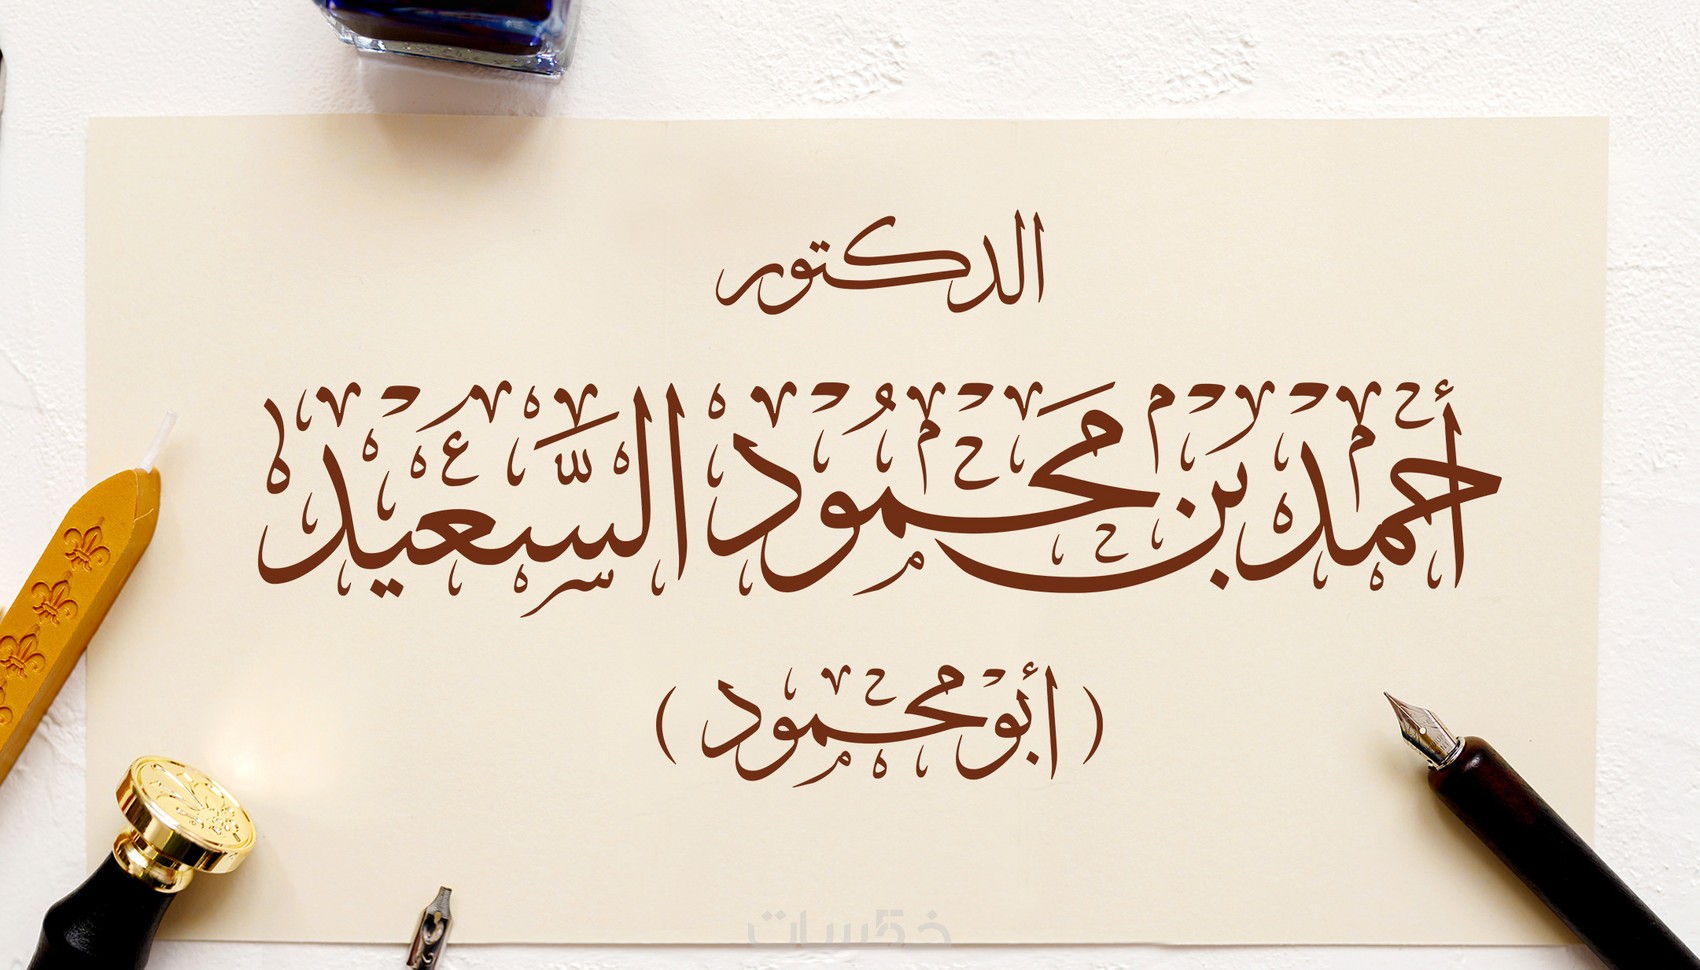 الدكتور
أحمد بن محمود السعيد
( أبو محمود )
خمسات